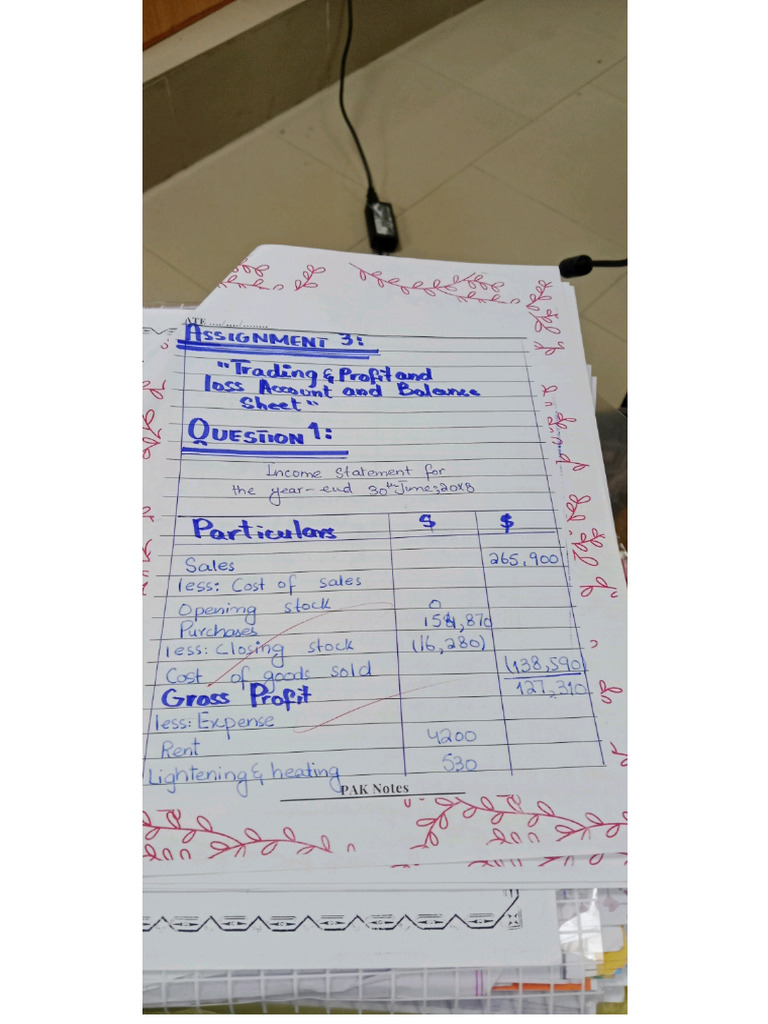 ATE ..../..../........
ASSIGNMENT 3:
"Trading & Profit and
loss Account and Balance
Sheet"
QUESTION 1:
Income Statement for
the year-end 30th June; 20X8
Particulars $ $
Sales 265,900
less: Cost of sales
Opening stock 0
Purchases 154,870
less: Closing stock (16,280)
Cost of goods sold (138,590)
Gross Profit 127,310
less: Expense
Rent 4200
Lightening & heating 530
PAK Notes